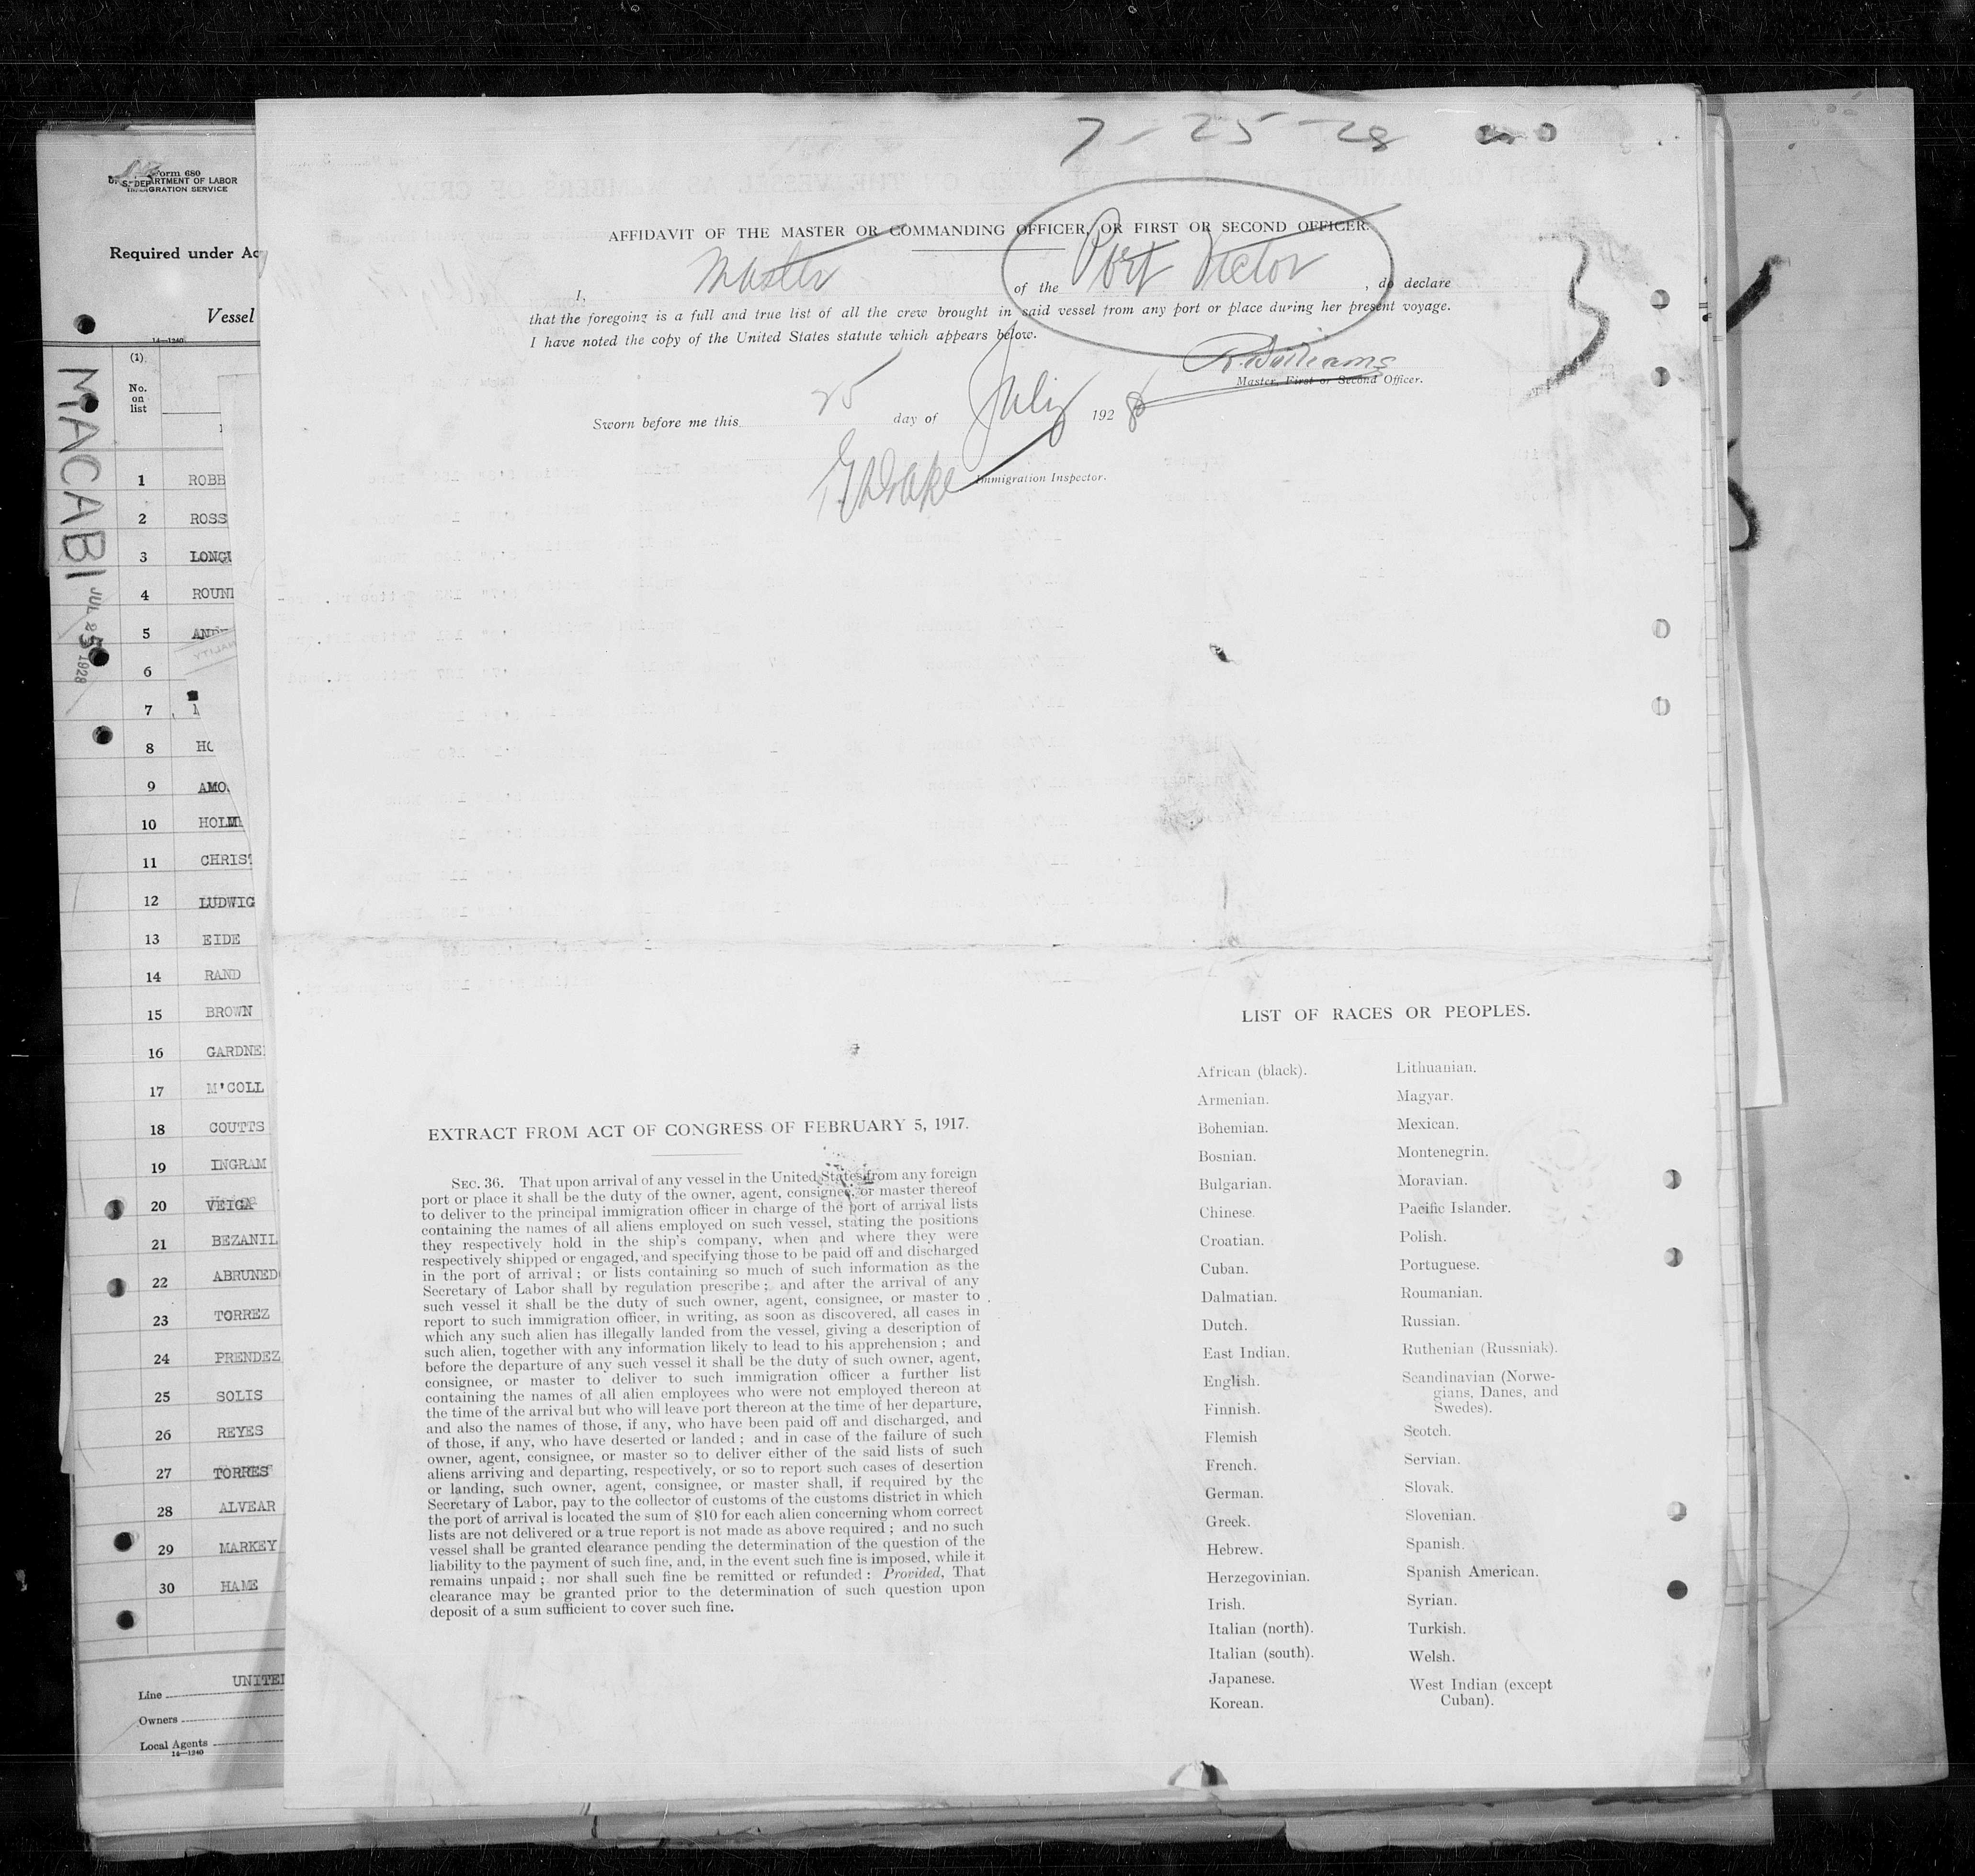 7-25-28
Form 680
U. S. DEPARTMENT OF LABOR
IMMIGRATION SERVICE
Required under Ac
Vessel
14—1240
(1)
No.
on
list
MACABI
JUL 25 1928
1 ROBB
2 ROSS
3 LONG
4 ROUN
5 AND
6
7
8 HO
9 AMO
10 HOLM
11 CHRIS
12 LUDWIG
13 EIDE
14 RAND
15 BROWN
16 GARDNE
17 M'COLL
18 COUTTS
19 INGRAM
20 VEIGA
21 BEZANIL
22 ABRUNED
23 TORREZ
24 PRENDEZ
25 SOLIS
26 REYES
27 TORRES
28 ALVEAR
29 MARKEY
30 HAME
Line UNITE
Owners
Local Agents
14—1240
AFFIDAVIT OF THE MASTER OR COMMANDING OFFICER, OR FIRST OR SECOND OFFICER.
I, Master of the Port Victor, do declare
that the foregoing is a full and true list of all the crew brought in said vessel from any port or place during her present voyage.
I have noted the copy of the United States statute which appears below.
R Williams
Master, First or Second Officer.
Sworn before me this 25 day of July 1928
Drake
Immigration Inspector.
3
EXTRACT FROM ACT OF CONGRESS OF FEBRUARY 5, 1917.
SEC. 36. That upon arrival of any vessel in the United States from any foreign
port or place it shall be the duty of the owner, agent, consignee, or master thereof
to deliver to the principal immigration officer in charge of the port of arrival lists
containing the names of all aliens employed on such vessel, stating the positions
they respectively hold in the ship's company, when and where they were
respectively shipped or engaged, and specifying those to be paid off and discharged
in the port of arrival; or lists containing so much of such information as the
Secretary of Labor shall by regulation prescribe; and after the arrival of any
such vessel it shall be the duty of such owner, agent, consignee, or master to
report to such immigration officer, in writing, as soon as discovered, all cases in
which any such alien has illegally landed from the vessel, giving a description of
such alien, together with any information likely to lead to his apprehension; and
before the departure of any such vessel it shall be the duty of such owner, agent,
consignee, or master to deliver to such immigration officer a further list
containing the names of all alien employees who were not employed thereon at
the time of the arrival but who will leave port thereon at the time of her departure,
and also the names of those, if any, who have been paid off and discharged, and
of those, if any, who have deserted or landed; and in case of the failure of such
owner, agent, consignee, or master so to deliver either of the said lists of such
aliens arriving and departing, respectively, or so to report such cases of desertion
or landing, such owner, agent, consignee, or master shall, if required by the
Secretary of Labor, pay to the collector of customs of the customs district in which
the port of arrival is located the sum of $10 for each alien concerning whom correct
lists are not delivered or a true report is not made as above required; and no such
vessel shall be granted clearance pending the determination of the question of the
liability to the payment of such fine, and, in the event such fine is imposed, while it
remains unpaid; nor shall such fine be remitted or refunded: Provided, That
clearance may be granted prior to the determination of such question upon
deposit of a sum sufficient to cover such fine.
LIST OF RACES OR PEOPLES.
African (black).
Armenian.
Bohemian.
Bosnian.
Bulgarian.
Chinese.
Croatian.
Cuban.
Dalmatian.
Dutch.
East Indian.
English.
Finnish.
Flemish
French.
German.
Greek.
Hebrew.
Herzegovinian.
Irish.
Italian (north).
Italian (south).
Japanese.
Korean.
Lithuanian.
Magyar.
Mexican.
Montenegrin.
Moravian.
Pacific Islander.
Polish.
Portuguese.
Roumanian.
Russian.
Ruthenian (Russniak).
Scandinavian (Norwe-
gians, Danes, and
Swedes).
Scotch.
Servian.
Slovak.
Slovenian.
Spanish.
Spanish American.
Syrian.
Turkish.
Welsh.
West Indian (except
Cuban).